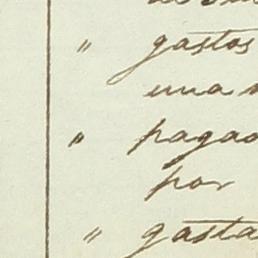 " gastos
una
" pagad
por
" gasta